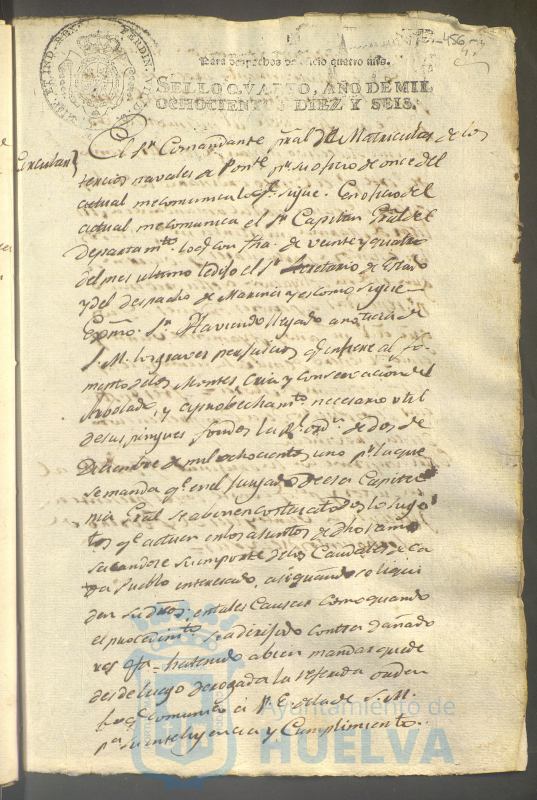 456
Para despachos de oficio quatro mrs.
SELLO QVARTO, AÑO DE MIL
OCHOCIENTOS DIEZ Y SEIS.
Circular
El Sr. Comandante pral de Matriculas de los
tercios navales de Ponte. pr. su oficio de once del
actual me comunica lo q. sigue. Con oficio del
actual me comunica el Sr. Capitan Gral del
Departamto. lo q. con fha. de veinte y quatro
del mes ultimo le dijo el Sr. Secretario de Estado
y del despacho de Marina y es como sigue
Exmo. Sr. Haviendo llegado a noticia de
S. M. los graves perjuicios q. infiere al fo-
mento de los Montes, cria y conservacion del
Arbolado, y aprobechamto. necesario util
de sus pingues fondos la Rl. ordn. de dos de
Diciembre de mil ochocientos uno pr. la que
se manda qe. en el Juzgado de esa Capita-
nia Gral se abonen costas a todos los suge-
tos qe. actuen en los asuntos de dho ramo
sacandose su importe de los Caudales de ca-
da Pueblo interesado, asignando o liqui
den sus dros. en tales Causas como quando
el procedimto. sea dirijido contra dañado
res &a. ha tenido a bien mandar quede
desde luego derogada la referida orden
lo q. comunico a V. E. de la de S. M.
pa. su inteligencia y Cumplimiento.
Ayuntamiento de
HUELVA